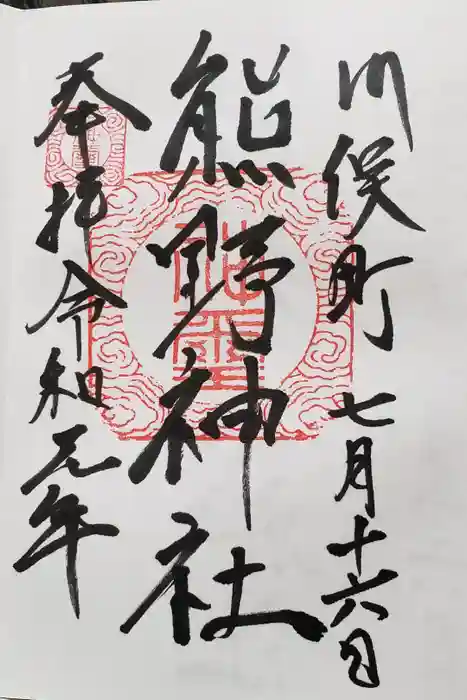 川俣町 七月十六日
熊野神社
奉拝 令和元年